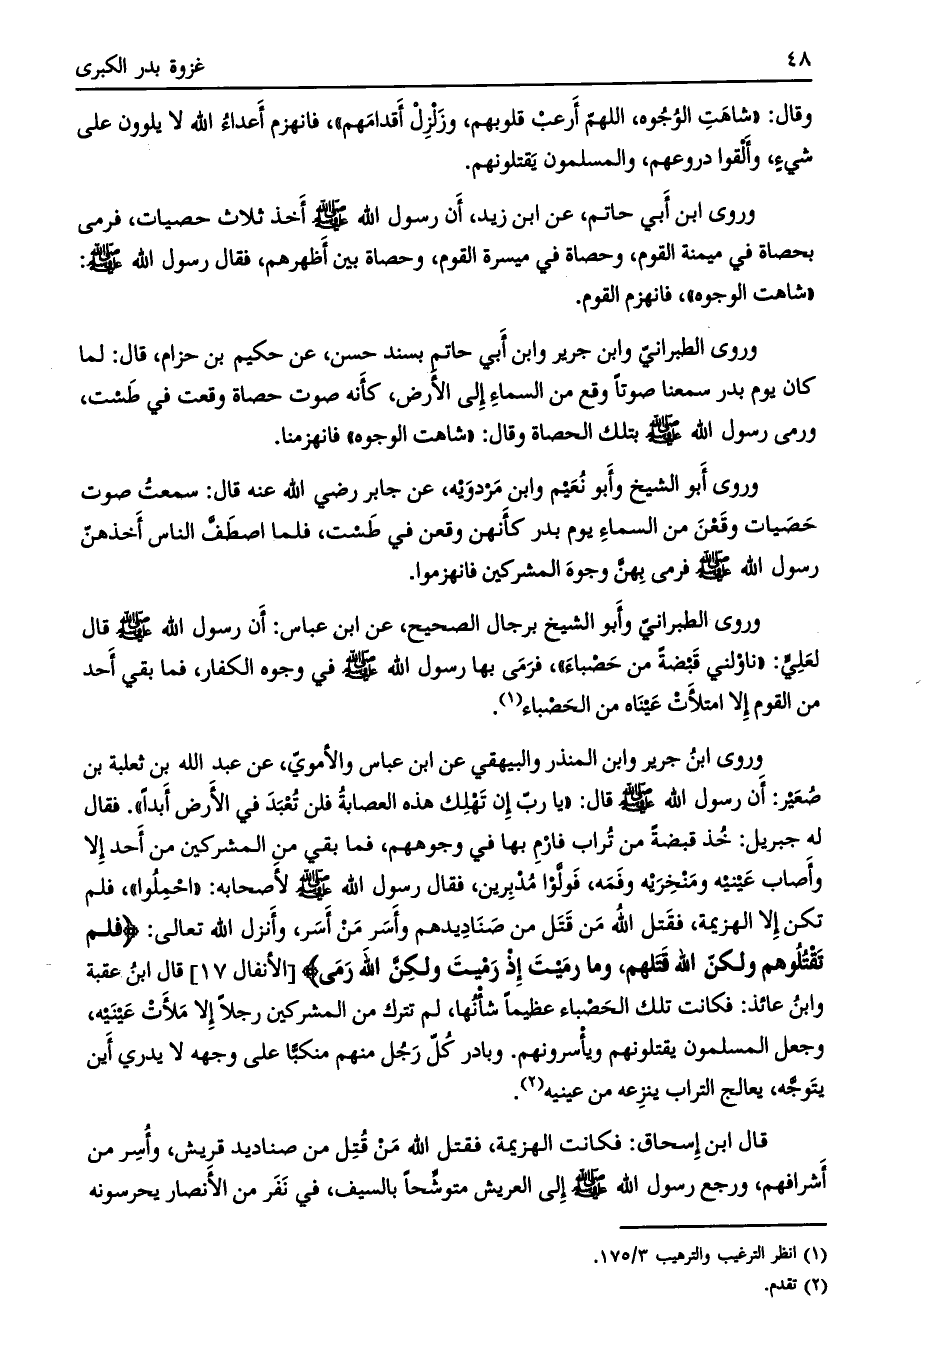 ٤٨
غزوة بدر الكبرى
وقال: «شاهَتِ الوُجُوه، اللهمّ أَرعبْ قلوبهم، وزَلْزِلْ أَقدامَهم»، فانهزم أَعداءُ الله لا يلوون على
شيءٍ، وأَلْقوا دروعهم، والمسلمون يَقتلونهم.
وروى ابن أَبي حاتم، عن ابن زيد، أَن رسول الله ﷺ أَخذ ثلاث حصيات، فرمى
بحصاة في ميمنة القوم، وحصاة في ميسرة القوم، وحصاة بين أَظهرهم، فقال رسول الله ﷺ:
«شاهت الوجوه»، فانهزم القوم.
وروى الطبرانيّ وابن جرير وابن أَبي حاتم بسند حسن، عن حكيم بن حزام، قال: لما
كان يوم بدر سمعنا صوتاً وقع من السماءِ إِلى الأَرض، كأَنه صوت حصاة وقعت في طَسْت،
ورمى رسول الله ﷺ بتلك الحصاة وقال: «شاهت الوجوه» فانهزمنا.
وروى أَبو الشيخ وأَبو نُعَيْم وابن مَرْدوَيْه، عن جابر رضي الله عنه قال: سمعتُ صوت
حَصَيات وقَعْنَ من السماءِ يوم بدر كأَنهن وقعن في طَسْت، فلما اصطَفَّ الناس أَخذهنّ
رسول الله ﷺ فرمى بِهنَّ وجوهَ المشركين فانهزموا.
وروى الطبرانيّ وأَبو الشيخ برجال الصحيح، عن ابن عباس: أَن رسول الله ﷺ قال
لعَلِيٍّ: «ناوْلني قَبْضةً من حَصْباءَ»، فرَمَى بها رسول الله ﷺ في وجوه الكفار، فما بقي أَحد
من القوم إِلا امتلأَتْ عَيْنَاه من الحَصْباء(١).
وروى ابنُ جرير وابن المنذر والبيهقي عن ابن عباس والأمويّ، عن عبد الله بن ثعلبة بن
صُعَيْر: أَن رسول الله ﷺ قال: «يا ربّ إِن تَهْلِك هذه العصابةُ فلن تُعْبَدَ في الأَرض أَبداً». فقال
له جبريل: خُذ قبضةً من تُراب فارْمِ بها في وجوههم، فما بقي من المشركين من أَحد إِلا
وأَصاب عَيْنيْه ومَنْخِرَيْه وفَمَه، فَولَّوْا مُدْبِرين، فقال رسول الله ﷺ لأَصحابه: «احْمِلُوا»، فلم
تكن إِلا الهزيمة، فقَتل اللهُ مَن قَتَل من صَنَادِيدهم وأَسَر مَنْ أَسَر، وأَنزل الله تعالى: ﴿فلم
تَقْتُلُوهم ولكنّ الله قَتَلهم، وما رمَيْتَ إِذْ رَميْتَ ولكِنَّ اللهَ رَمَى﴾ [الأنفال ١٧] قال ابنُ عقبة
وابنُ عائذ: فكانت تلك الحَصْباء عظيماً شأْنُها، لم تترك من المشركين رجلاً إِلا مَلأَتْ عَيْنَيْه،
وجعل المسلمون يقتلونهم ويأْسرونهم. وبادر كُلّ رَجُل منهم منكبًّا على وجهه لا يدري أَين
يتَوجَّه، يعالج التراب ينزِعه من عينيه(٢).
قال ابن إِسحاق: فكانت الهزيمة، فقتل الله مَنْ قُتِل من صناديد قريش، وأُسِر من
أَشرافهم، ورجع رسول الله ﷺ إِلى العريش متوشِّحاً بالسيف، في نَفَر من الأَنصار يحرسونه
(١) انظر الترغيب والترهيب ١٧٥/٣.
(٢) تقدم.